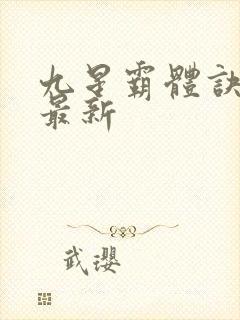 九星霸體訣
最新
武瓔